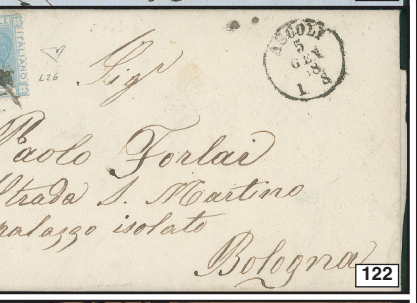 ITALIANO
L26
ASCOLI
5
GEN
68
1 S
Sigr
Paolo Forlai
Strada S. Martino
palazzo isolato
Bologna
122